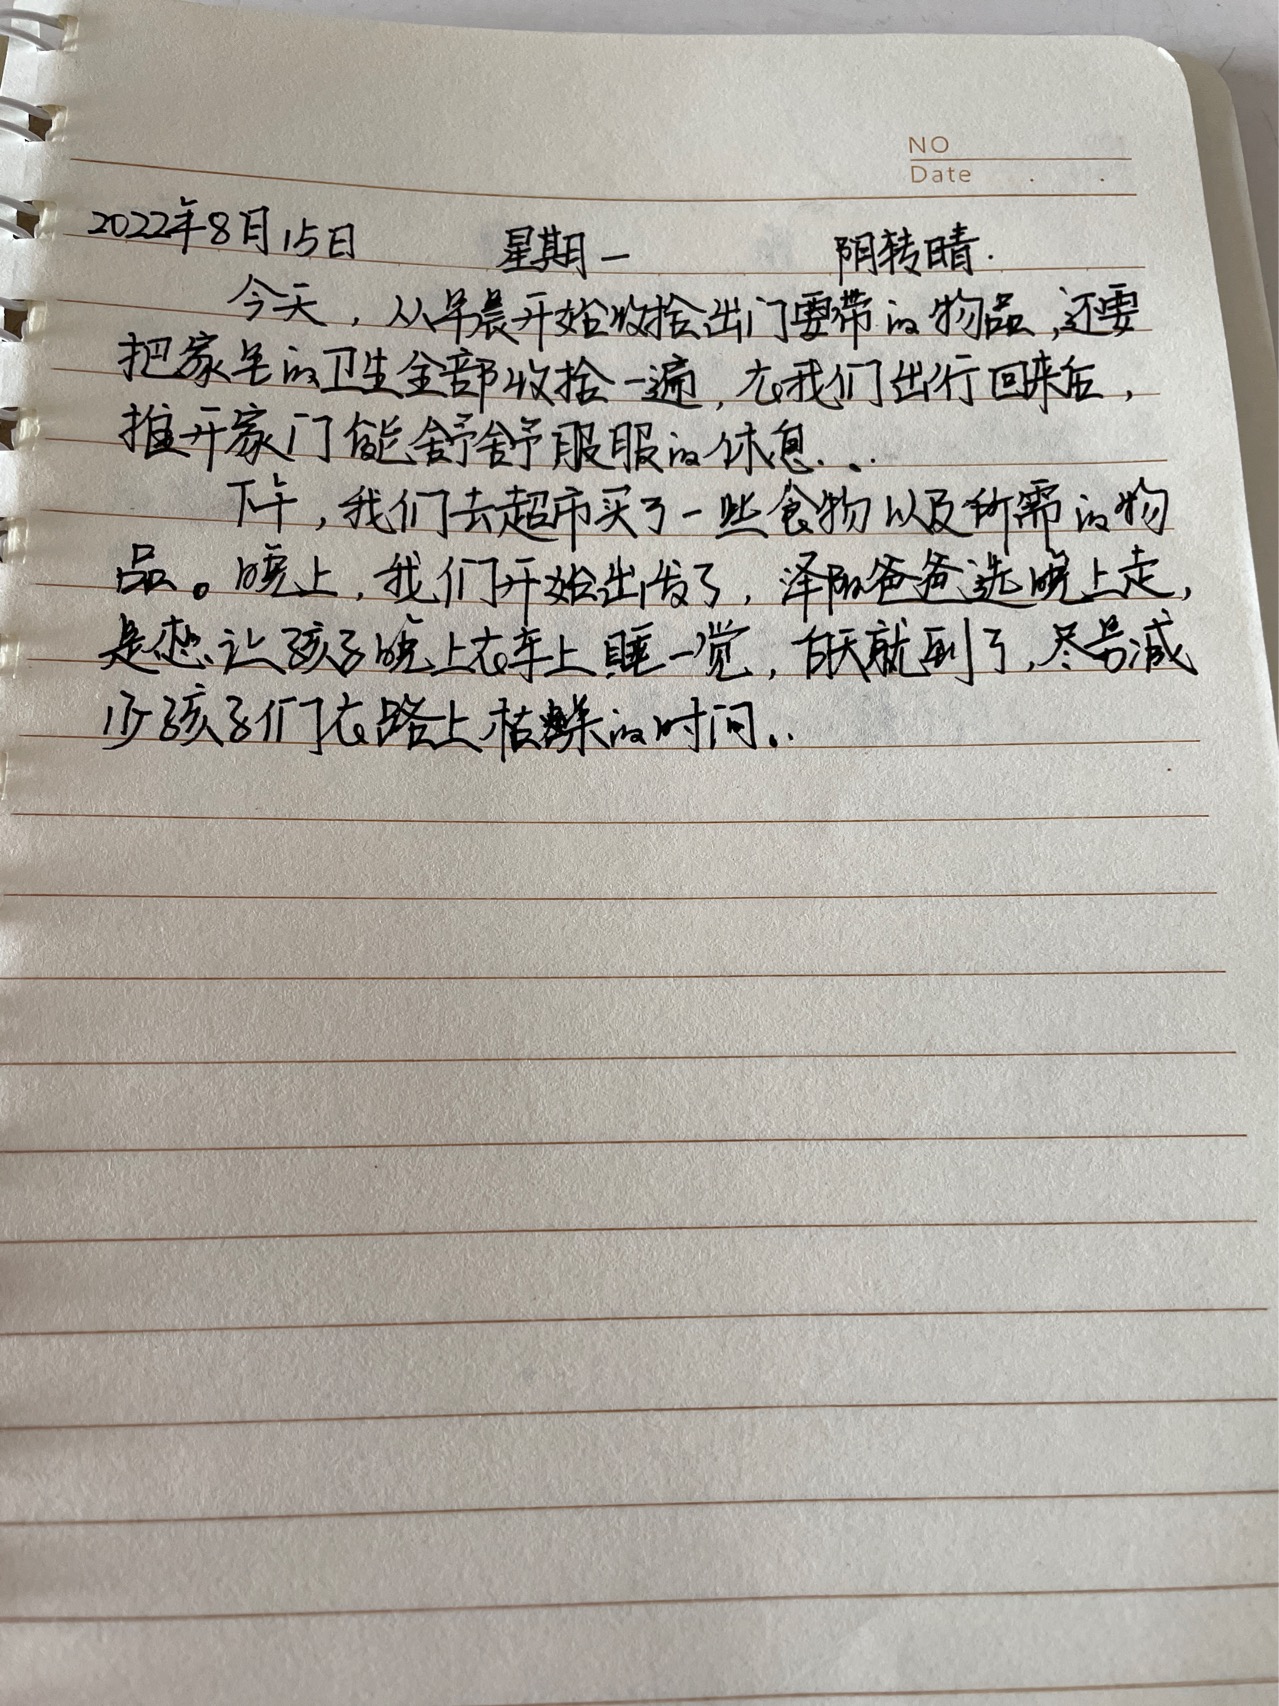 NO
Date
2022年8月15日 星期一 阴转晴.
今天，从早晨开始收拾出门要带的物品，还要
把家里的卫生全部收拾一遍，在我们出行回来后，
推开家门能舒舒服服的休息...
下午，我们去超市买了一些食物以及所需的物
品。晚上，我们开始出发了，泽阳爸爸选晚上走，
是想让孩子晚上在车上睡一觉，白天就到了，尽量减
少孩子们在路上枯燥的时间..